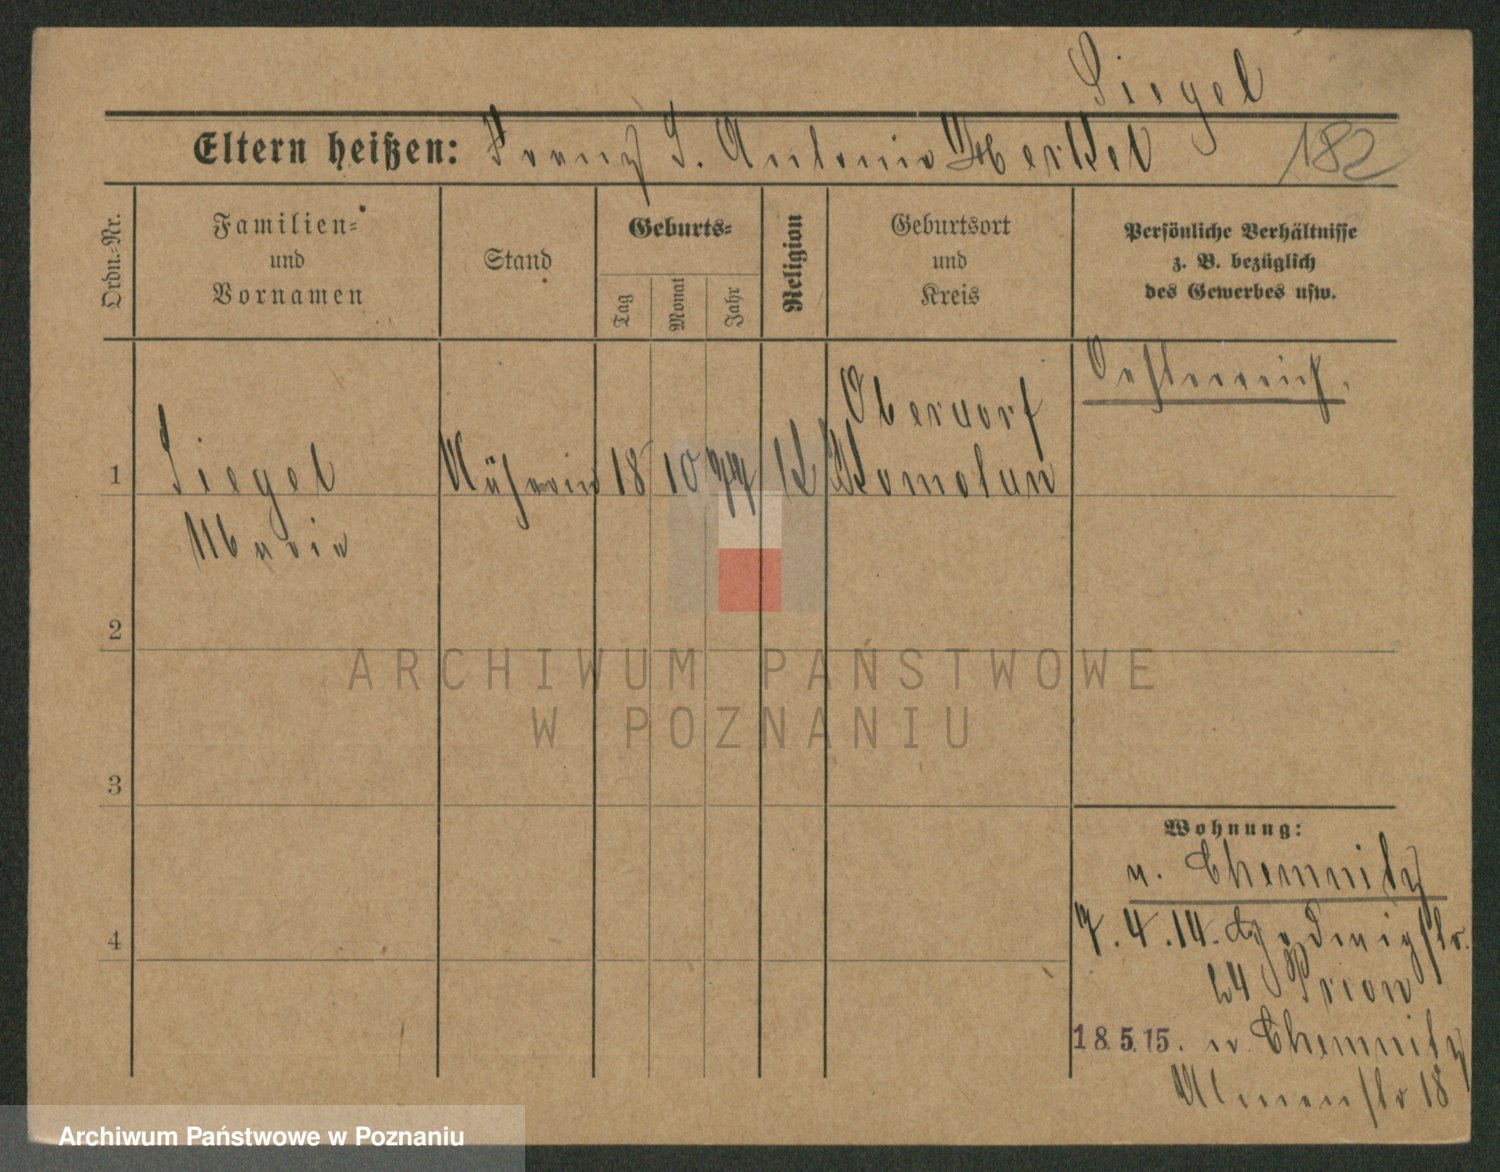 Siegel
Eltern heißen: Franz S. Antonia Hertel
182
Ordn.-Nr.
Familien-
und
Vornamen
Stand
Geburts-
Tag
Monat
Jahr
Religion
Geburtsort
und
Kreis
Persönliche Verhältnisse
z. B. bezüglich
des Gewerbes usw.
Oesterreich.
1
Siegel
Maria
Näherin
18
10
77
K
Oberdorf
Komotau
2
3
4
Wohnung:
n. Chemnitz
7.4.14.
24
18.5.15. n. Chemnitz
18
ARCHIWUM PAŃSTWOWE
W POZNANIU
Archiwum Państwowe w Poznaniu